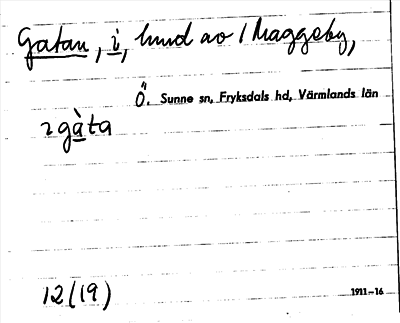 Gatan, i, hmd av 1 Maggeby,
Ö. Sunne sn, Fryksdals hd, Värmlands län
2 gàta
12 (19)
1911–16